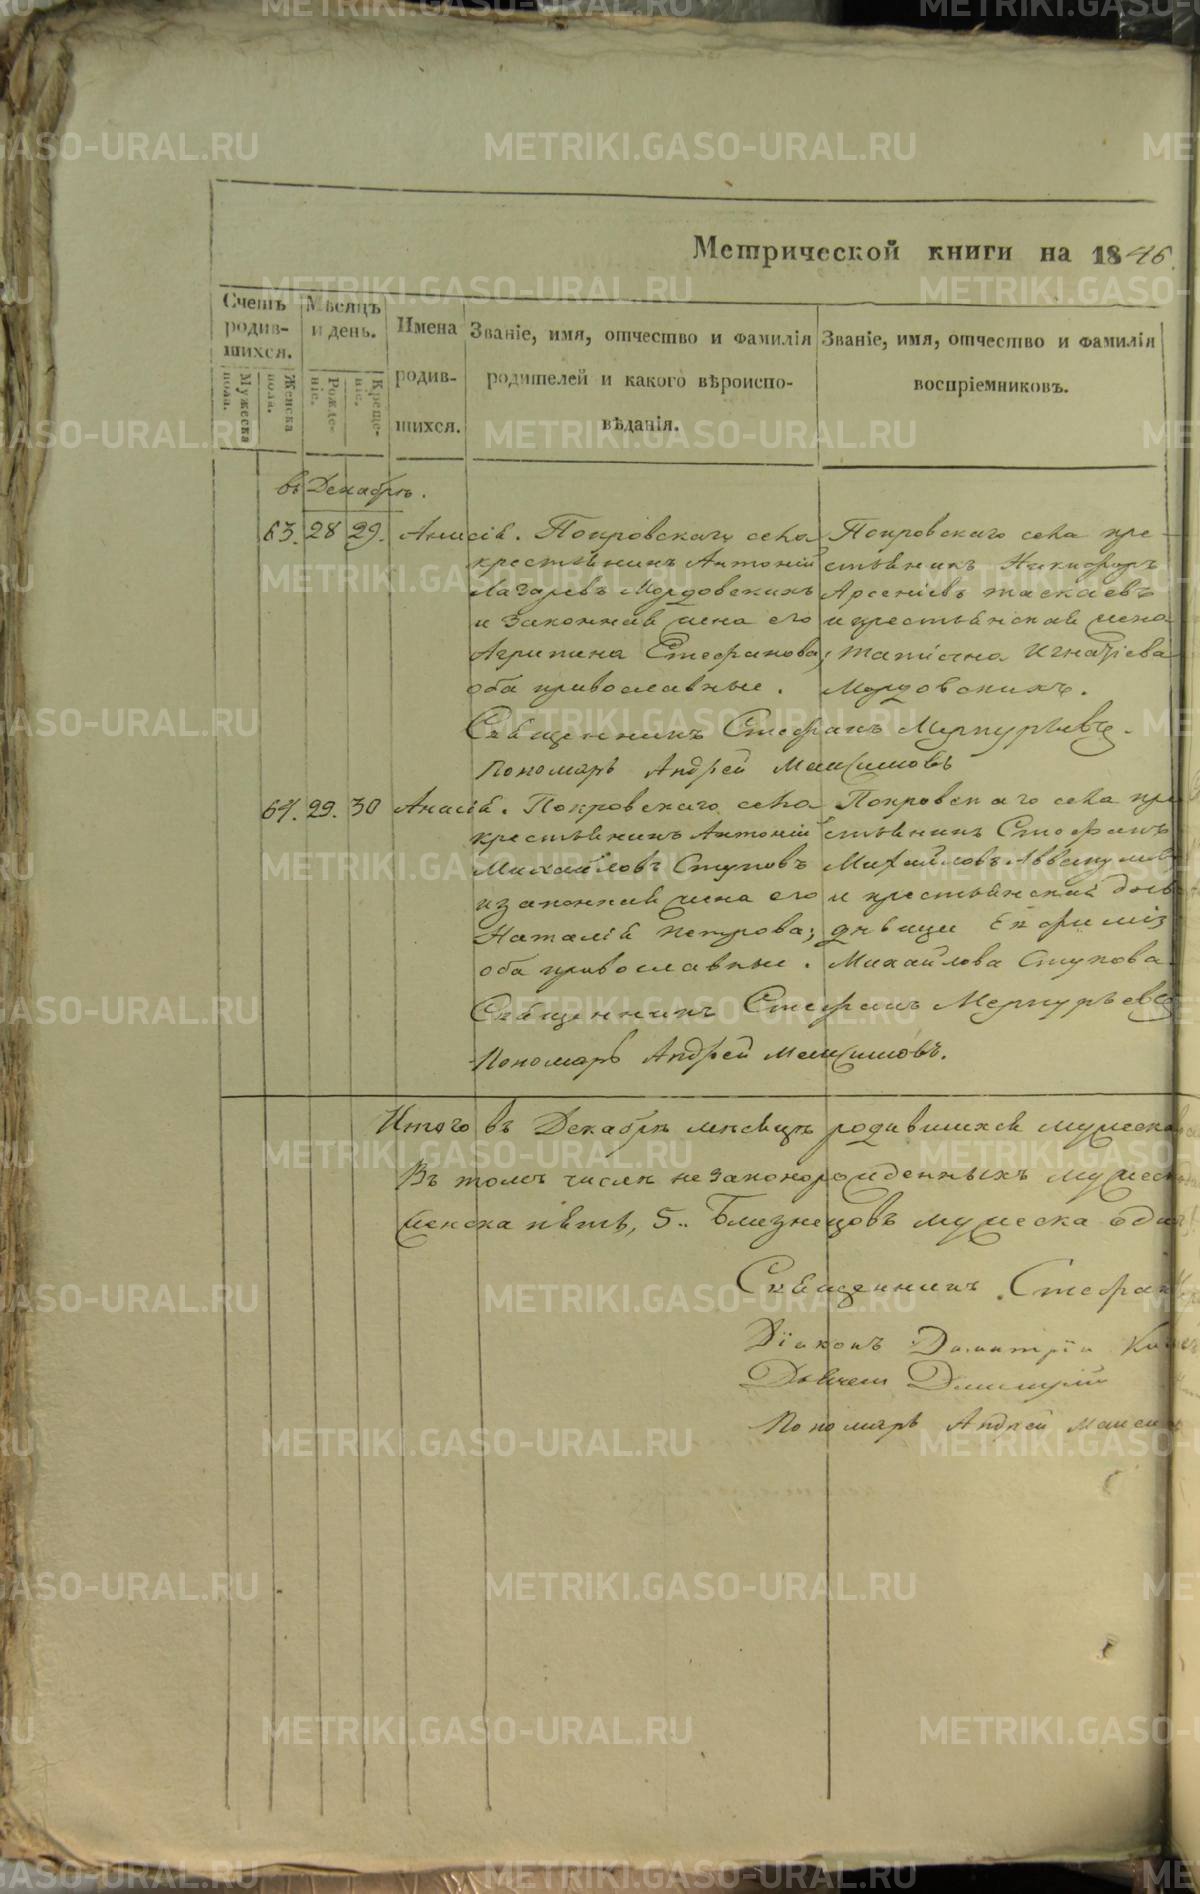 Метрической книги на 1846.
Счетъ родив-шихся.
Мужеска пола.
Женска пола.
Мѣсяцъ и день.
Рожде-ніе.
Креще-ніе.
Имена родив-шихся.
Званіе, имя, отчество и фамилія
родителей и какого вѣроиспо-
вѣданія.
Званіе, имя, отчество и фамилія
воспріемниковъ.
въ Декабрѣ.
63. 28 29. Анисія. Покровскаго села
крестьянинъ Антоній
Лазаревъ Мордовскихъ
и законная жена его
Агрипина Стефанова;
оба православные.
Покровскаго села кре-
стьянинъ Никифоръ
Арсеніевъ Таскаевъ
и крестьянская жена
Татіяна Игнатіева
Мордовскихъ.
Священникъ Стефанъ Меркурьевъ.
Пономарь Андрей Максимовъ
64. 29. 30 Анисія. Покровскаго села
крестьянинъ Антоній
Михайловъ Ступовъ
и законная жена его
Наталія Петрова;
оба православные.
Покровскаго села кре
стьянинъ Стефанъ
Михайловъ
и крестьянская
дѣвица
Михайлова Ступова.
Священникъ Стефанъ Меркурьевъ
Пономарь Андрей Максимовъ.
Итого въ Декабрѣ мѣсяцѣ родившихся мужеска
Въ томъ числѣ незаконорожденныхъ
женска пѣтъ, 5. Близнецовъ мужеска
Священникъ Стефан
Діаконъ Димитрій
Димитрій
Пономарь Андрей
METRIKI.GASO-URAL.RU